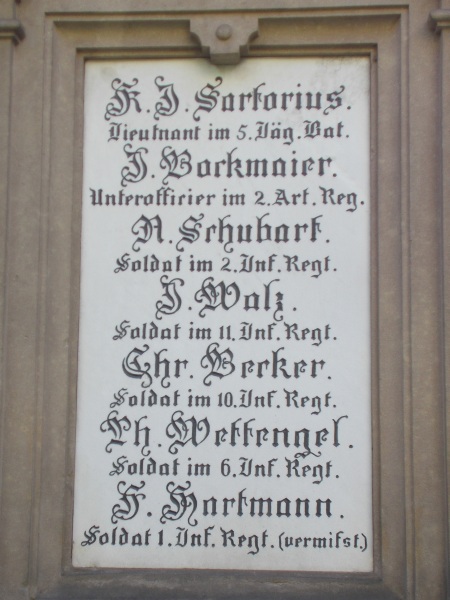 K. J. Sartorius.
Lieutnant im 5. Jäg. Bat.
J. Backmaier.
Unterofficier im 2. Art. Reg.
N. Schubart.
Soldat im 2. Inf. Regt.
J. Walz.
Soldat im 11. Inf. Regt.
Chr. Becker.
Soldat im 10. Inf. Regt.
Ph. Wettengel.
Soldat im 6. Inf. Regt.
F. Hartmann.
Soldat 1. Inf. Regt. (vermisst.)